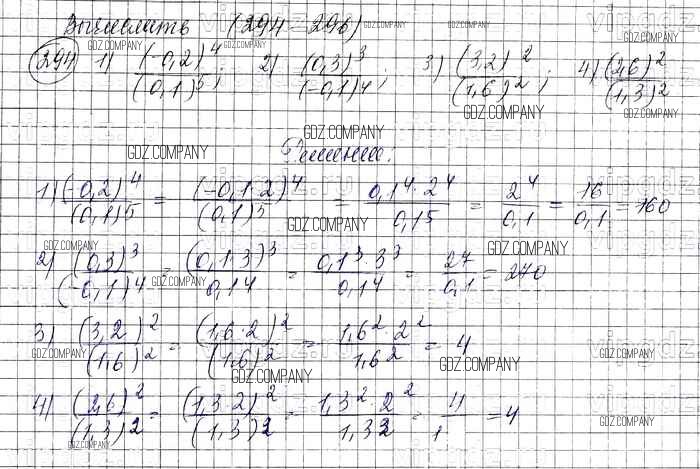 Вычислить (294-296)
294 1) (-0,2)^4/(0,1)^5; 2) (0,3)^3/(-0,1)^4; 3) (3,2)^2/(1,6)^2; 4) (2,6)^2/(1,3)^2
Решение:
1) (-0,2)^4/(0,1)^5 = (-0,1·2)^4/(0,1)^5 = 0,1^4·2^4/0,1^5 = 2^4/0,1 = 16/0,1 = 160
2) (0,3)^3/(-0,1)^4 = (0,1·3)^3/0,1^4 = 0,1^3·3^3/0,1^4 = 27/0,1 = 270
3) (3,2)^2/(1,6)^2 = (1,6·2)^2/(1,6)^2 = 1,6^2 2^2/1,6^2 = 4
4) (2,6)^2/(1,3)^2 = (1,3·2)^2/(1,3)^2 = 1,3^2·2^2/1,3^2 = 4/1 = 4
GDZ.COMPANY
vipgdz.ru